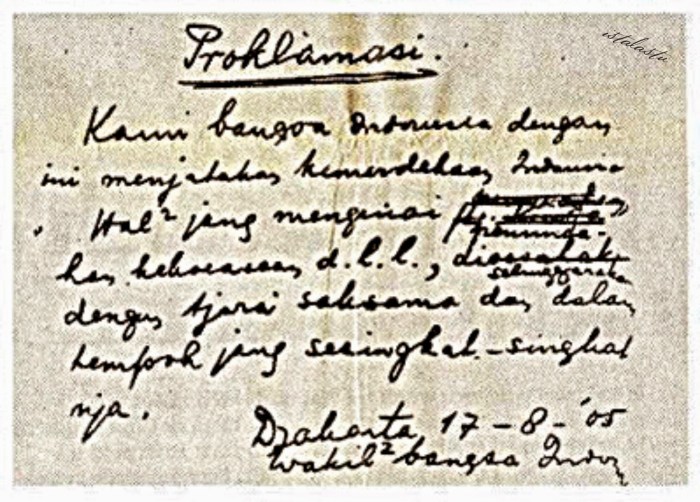 Proklamasi.
istalastu
Kami bangsa Indonesia dengan
ini menjatakan kemerdekaan Indonesia
Hal² jang mengenai
peminda-
han kekoeasaan d.l.l., dioesahakan
diselenggarakan
dengan tjara saksama dan dalam
tempoh jang sesingkat-singkat
nja.
Djakarta 17 - 8 - '05
Wakil² bangsa Indon